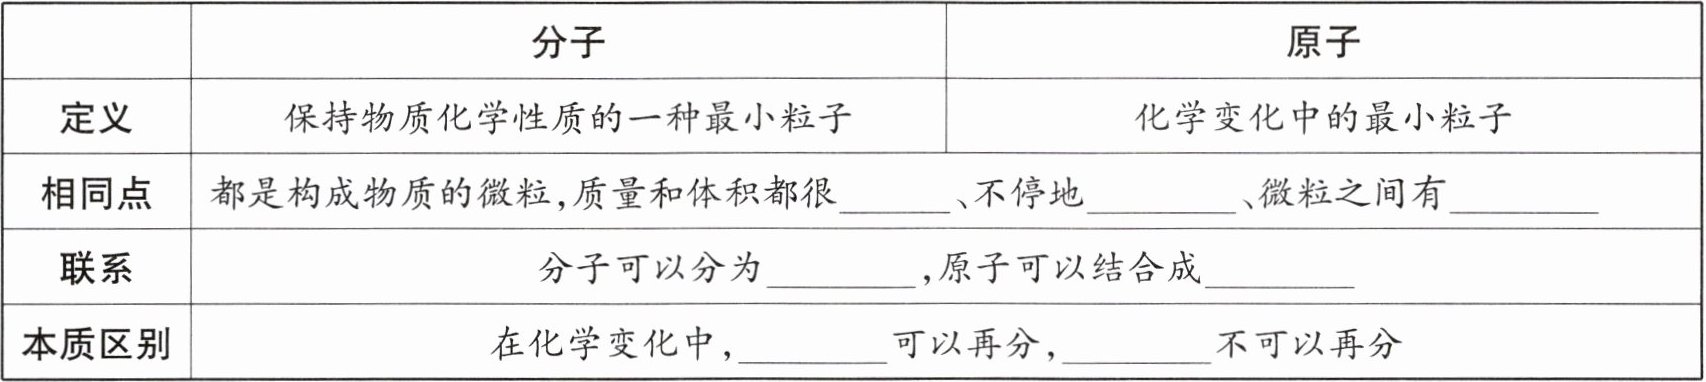 分子 原子
定义 保持物质化学性质的一种最小粒子 化学变化中的最小粒子
相同点 都是构成物质的微粒,质量和体积都很______、不停地________、微粒之间有________
联系 分子可以分为________,原子可以结合成________
本质区别 在化学变化中,________可以再分,________不可以再分